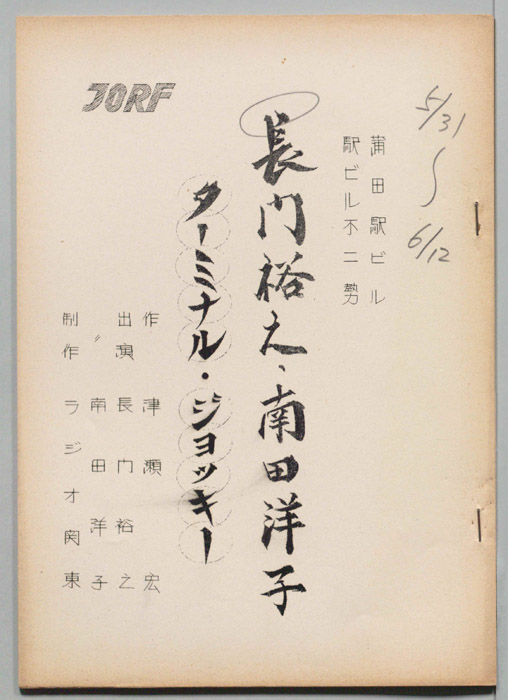 5/31
〜
6/12
蒲田駅ビル
駅ビル不二勢
長門裕之、南田洋子
ターミナル・ジョッキー
JORF
作 津瀬宏
出演 長門裕之
〃 南田洋子
制作 ラジオ関東